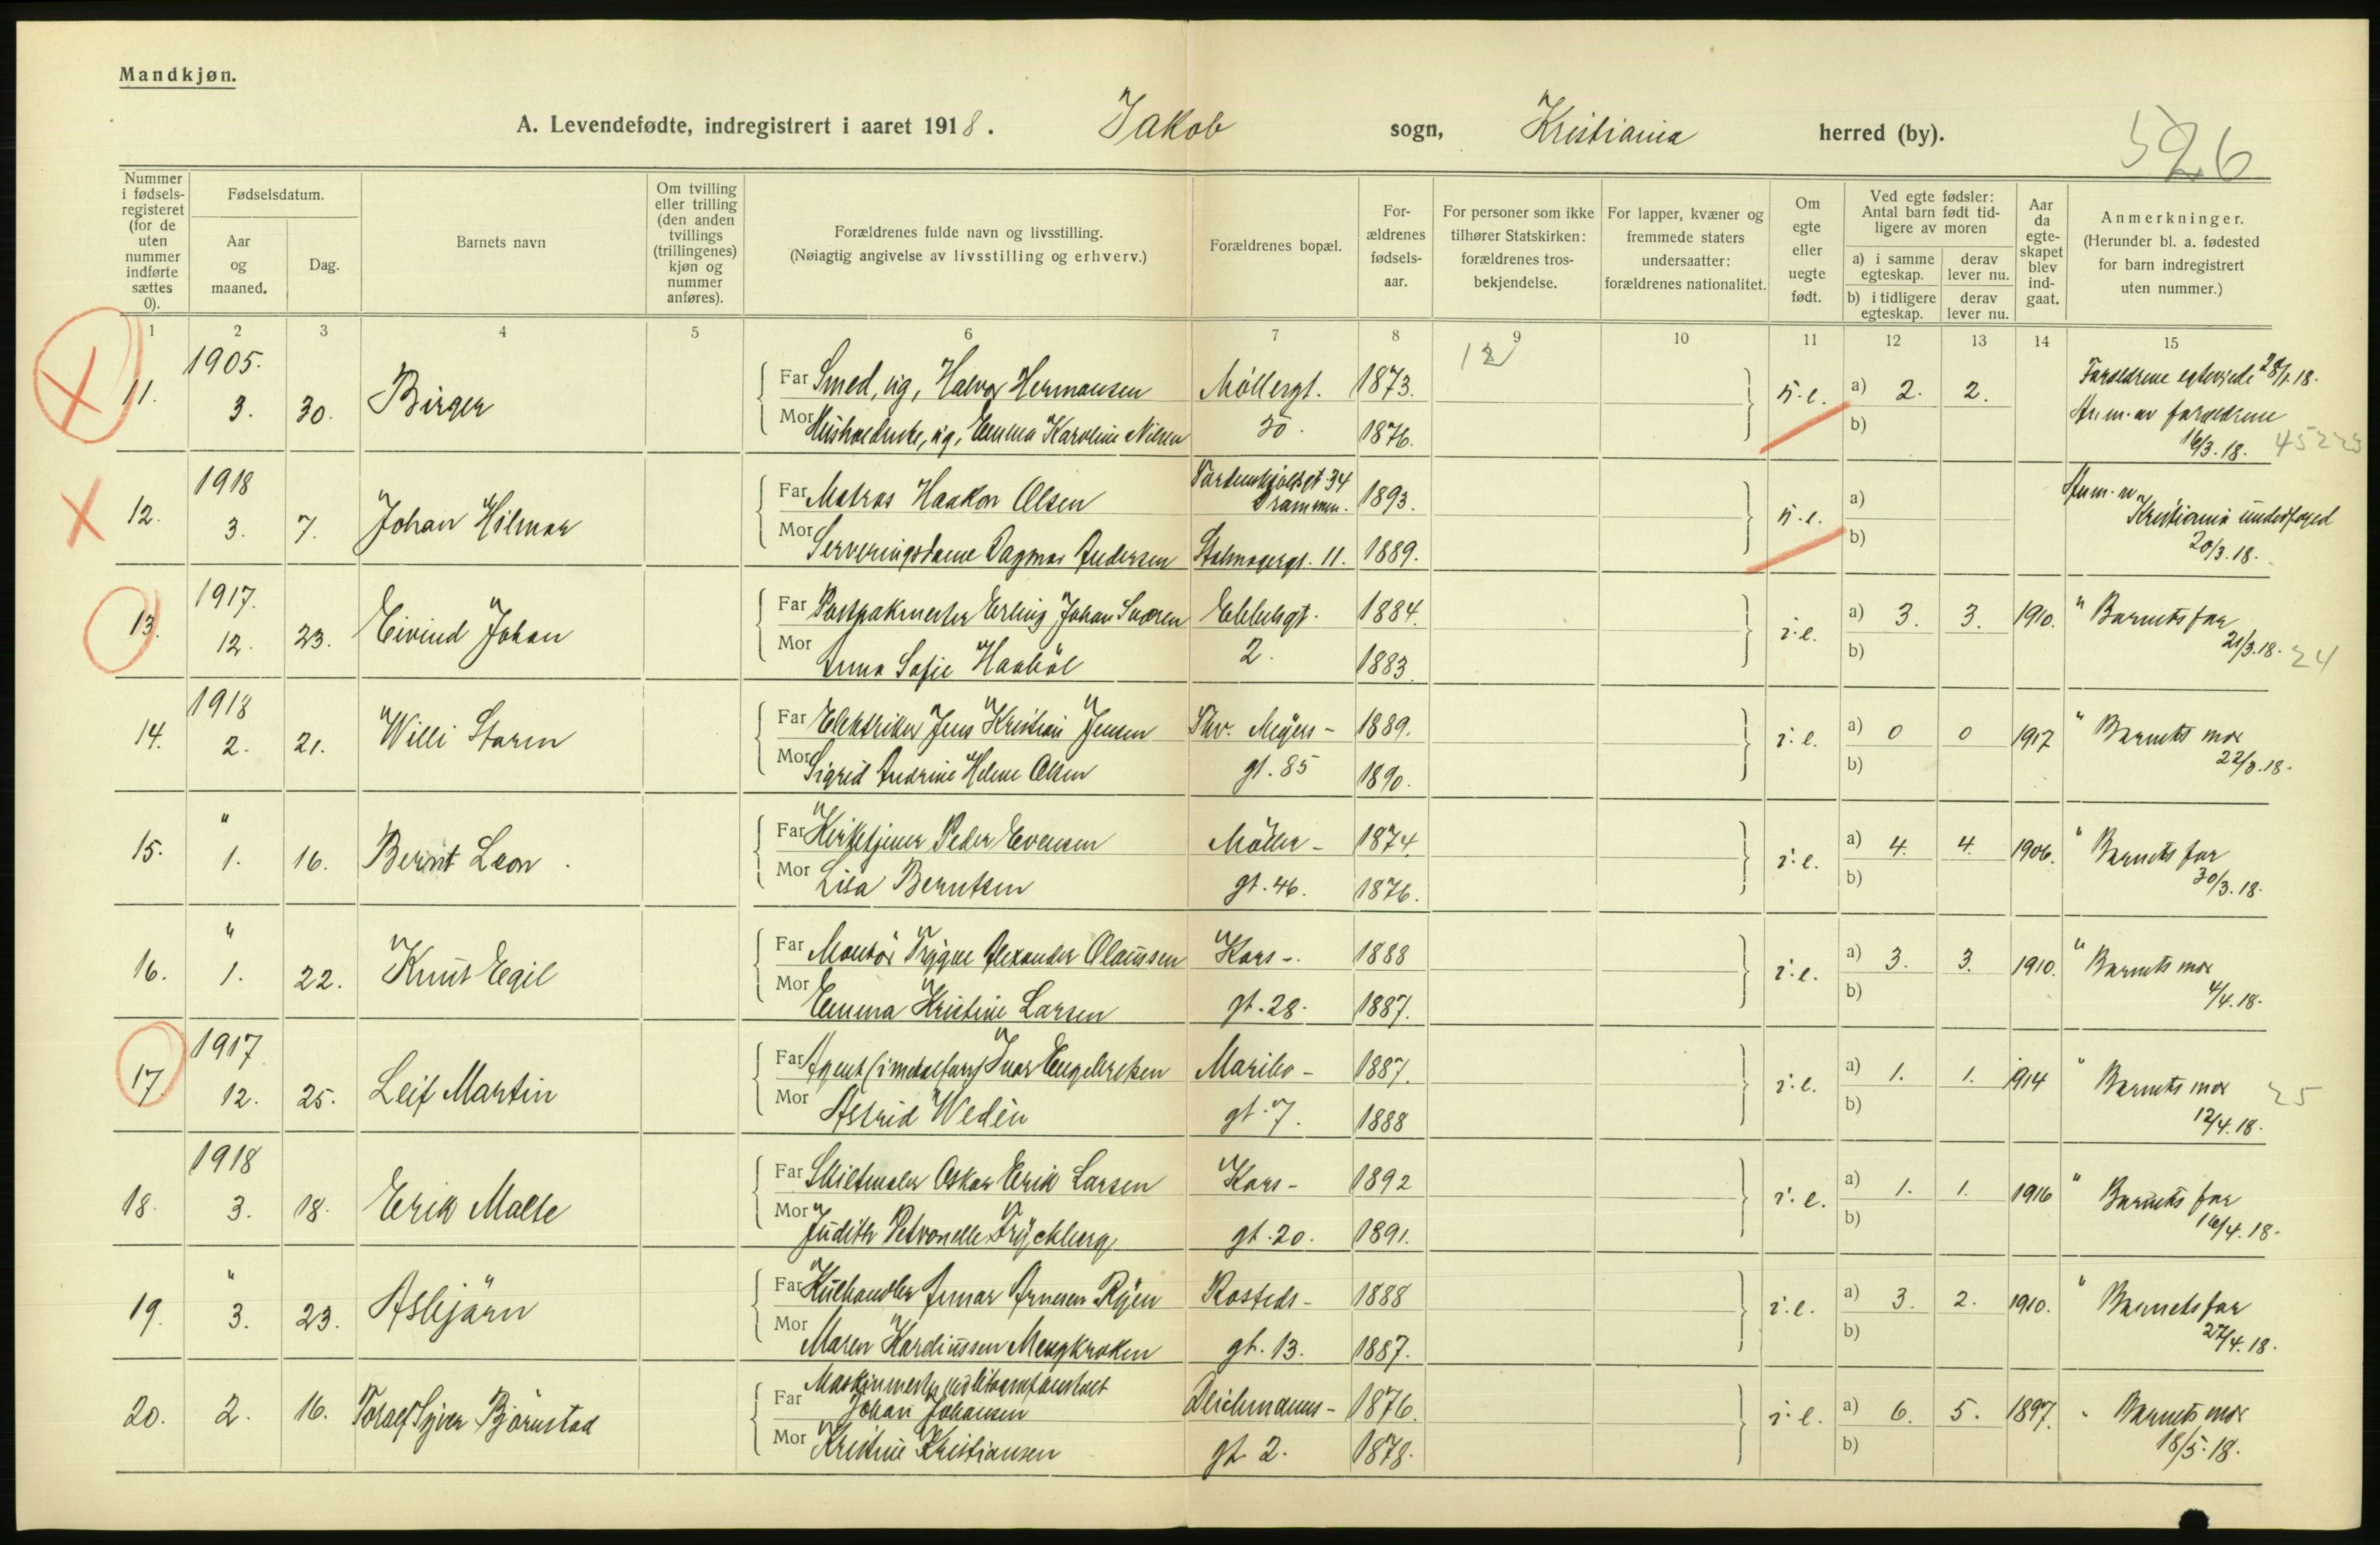 Mandkjøn.
A. Levendefødte, indregistrert i aaret 1918. Jakob sogn, Kristiania herred (by).
526
Nummer i fødselsregisteret (for de uten nummer indførte sættes 0).
Fødselsdatum.
Aar og maaned.
Dag.
Barnets navn
Om tvilling eller trilling (den anden tvillings (trillingenes) kjøn og nummer anføres).
Forældrenes fulde navn og livsstilling.
(Nøiagtig angivelse av livsstilling og erhverv.)
Forældrenes bopæl.
For-ældrenes fødsels-aar.
For personer som ikke tilhører Statskirken: forældrenes tros-bekjendelse.
For lapper, kvæner og fremmede staters undersaatter: forældrenes nationalitet.
Om egte eller uegte født.
Ved egte fødsler: Antal barn født tid-ligere av moren
a) i samme egteskap.
derav lever nu.
b) i tidligere egteskap.
derav lever nu.
Aar da egte-skapet blev ind-gaat.
Anmerkninger.
(Herunder bl. a. fødested for barn indregistrert uten nummer.)
1 2 3 4 5 6 7 8 9 10 11 12 13 14 15
12
11. 1905. 3. 30. Birger
Far Smed, ug, Halvor Hermansen Møllergt. 1873.
Mor Emma Karoline Nilsen 50. 1876.
a) 2. 2.
b)
Forældrene 28/1.18.
forældrene
16/3.18.
12. 1918 3. 7. Johan Hilmar
Far Matros Haakon Olsen 34 Drammen. 1893.
Mor Serveringsdame Dagmar Andersen 11. 1889.
a)
b)
Kristiania
20/3.18.
13. 1917. 12. 23. Eivind Johan
Far Postpakmester Erling Johan 1884.
Mor Anna Sofie 2. 1883.
i.e. a) 3. 3. 1910.
b)
" Barnets far
21/3.18. 24
14. 1918 2. 21. Willi Staren
Far Elektriker Jens Kristian Jensen Thv. Meyers- 1889.
Mor Sigrid Andrine Helene Olsen gt. 85 1890.
i.e. a) 0 0 1917
b)
" Barnets mor
22/3.18.
15. " 1. 16. Bernt Leon
Far Kirketjener Peder Evensen Møller- 1874.
Mor Lisa Berntsen gt. 46. 1876.
i.e. a) 4. 4. 1906.
b)
" Barnets far
30/3.18.
16. " 1. 22. Knut Egil
Far Montør Trygve Alexander Olaussen Kors- 1888
Mor Emma Kristine Larsen gt. 28. 1887.
i.e. a) 3. 3. 1910.
b)
" Barnets mor
4/4.18.
17. 1917 12. 25. Leif Martin
Far Agent Ivar Engebretsen Maribo- 1887.
Mor Astrid Wedèn gt. 7. 1888
i.e. a) 1. 1. 1914
b)
" Barnets mor 25
12/4.18.
18. 1918 3. 18. Erik Malte
Far Skiltmaler Oskar Erik Larsen Kors- 1892
Mor Judith Petronelle Fryckberg gt. 20. 1891.
i.e. a) 1. 1. 1916
b)
" Barnets far
16/4.18.
19. " 3. 23. Asbjørn
Far Kulhandler Arnesen Ryen Rosteds- 1888
Mor Maren gt. 13. 1887.
i.e. a) 3. 2. 1910.
b)
" Barnets far
27/4.18.
20. 2. 16. Toralf Syver Bjørnstad
Maskinmester
Far Johan Johansen Deichmanns- 1876.
Mor Kristine Kristiansen gt 2. 1878.
i.e. a) 6. 5. 1897.
b)
" Barnets mor
18/5.18.